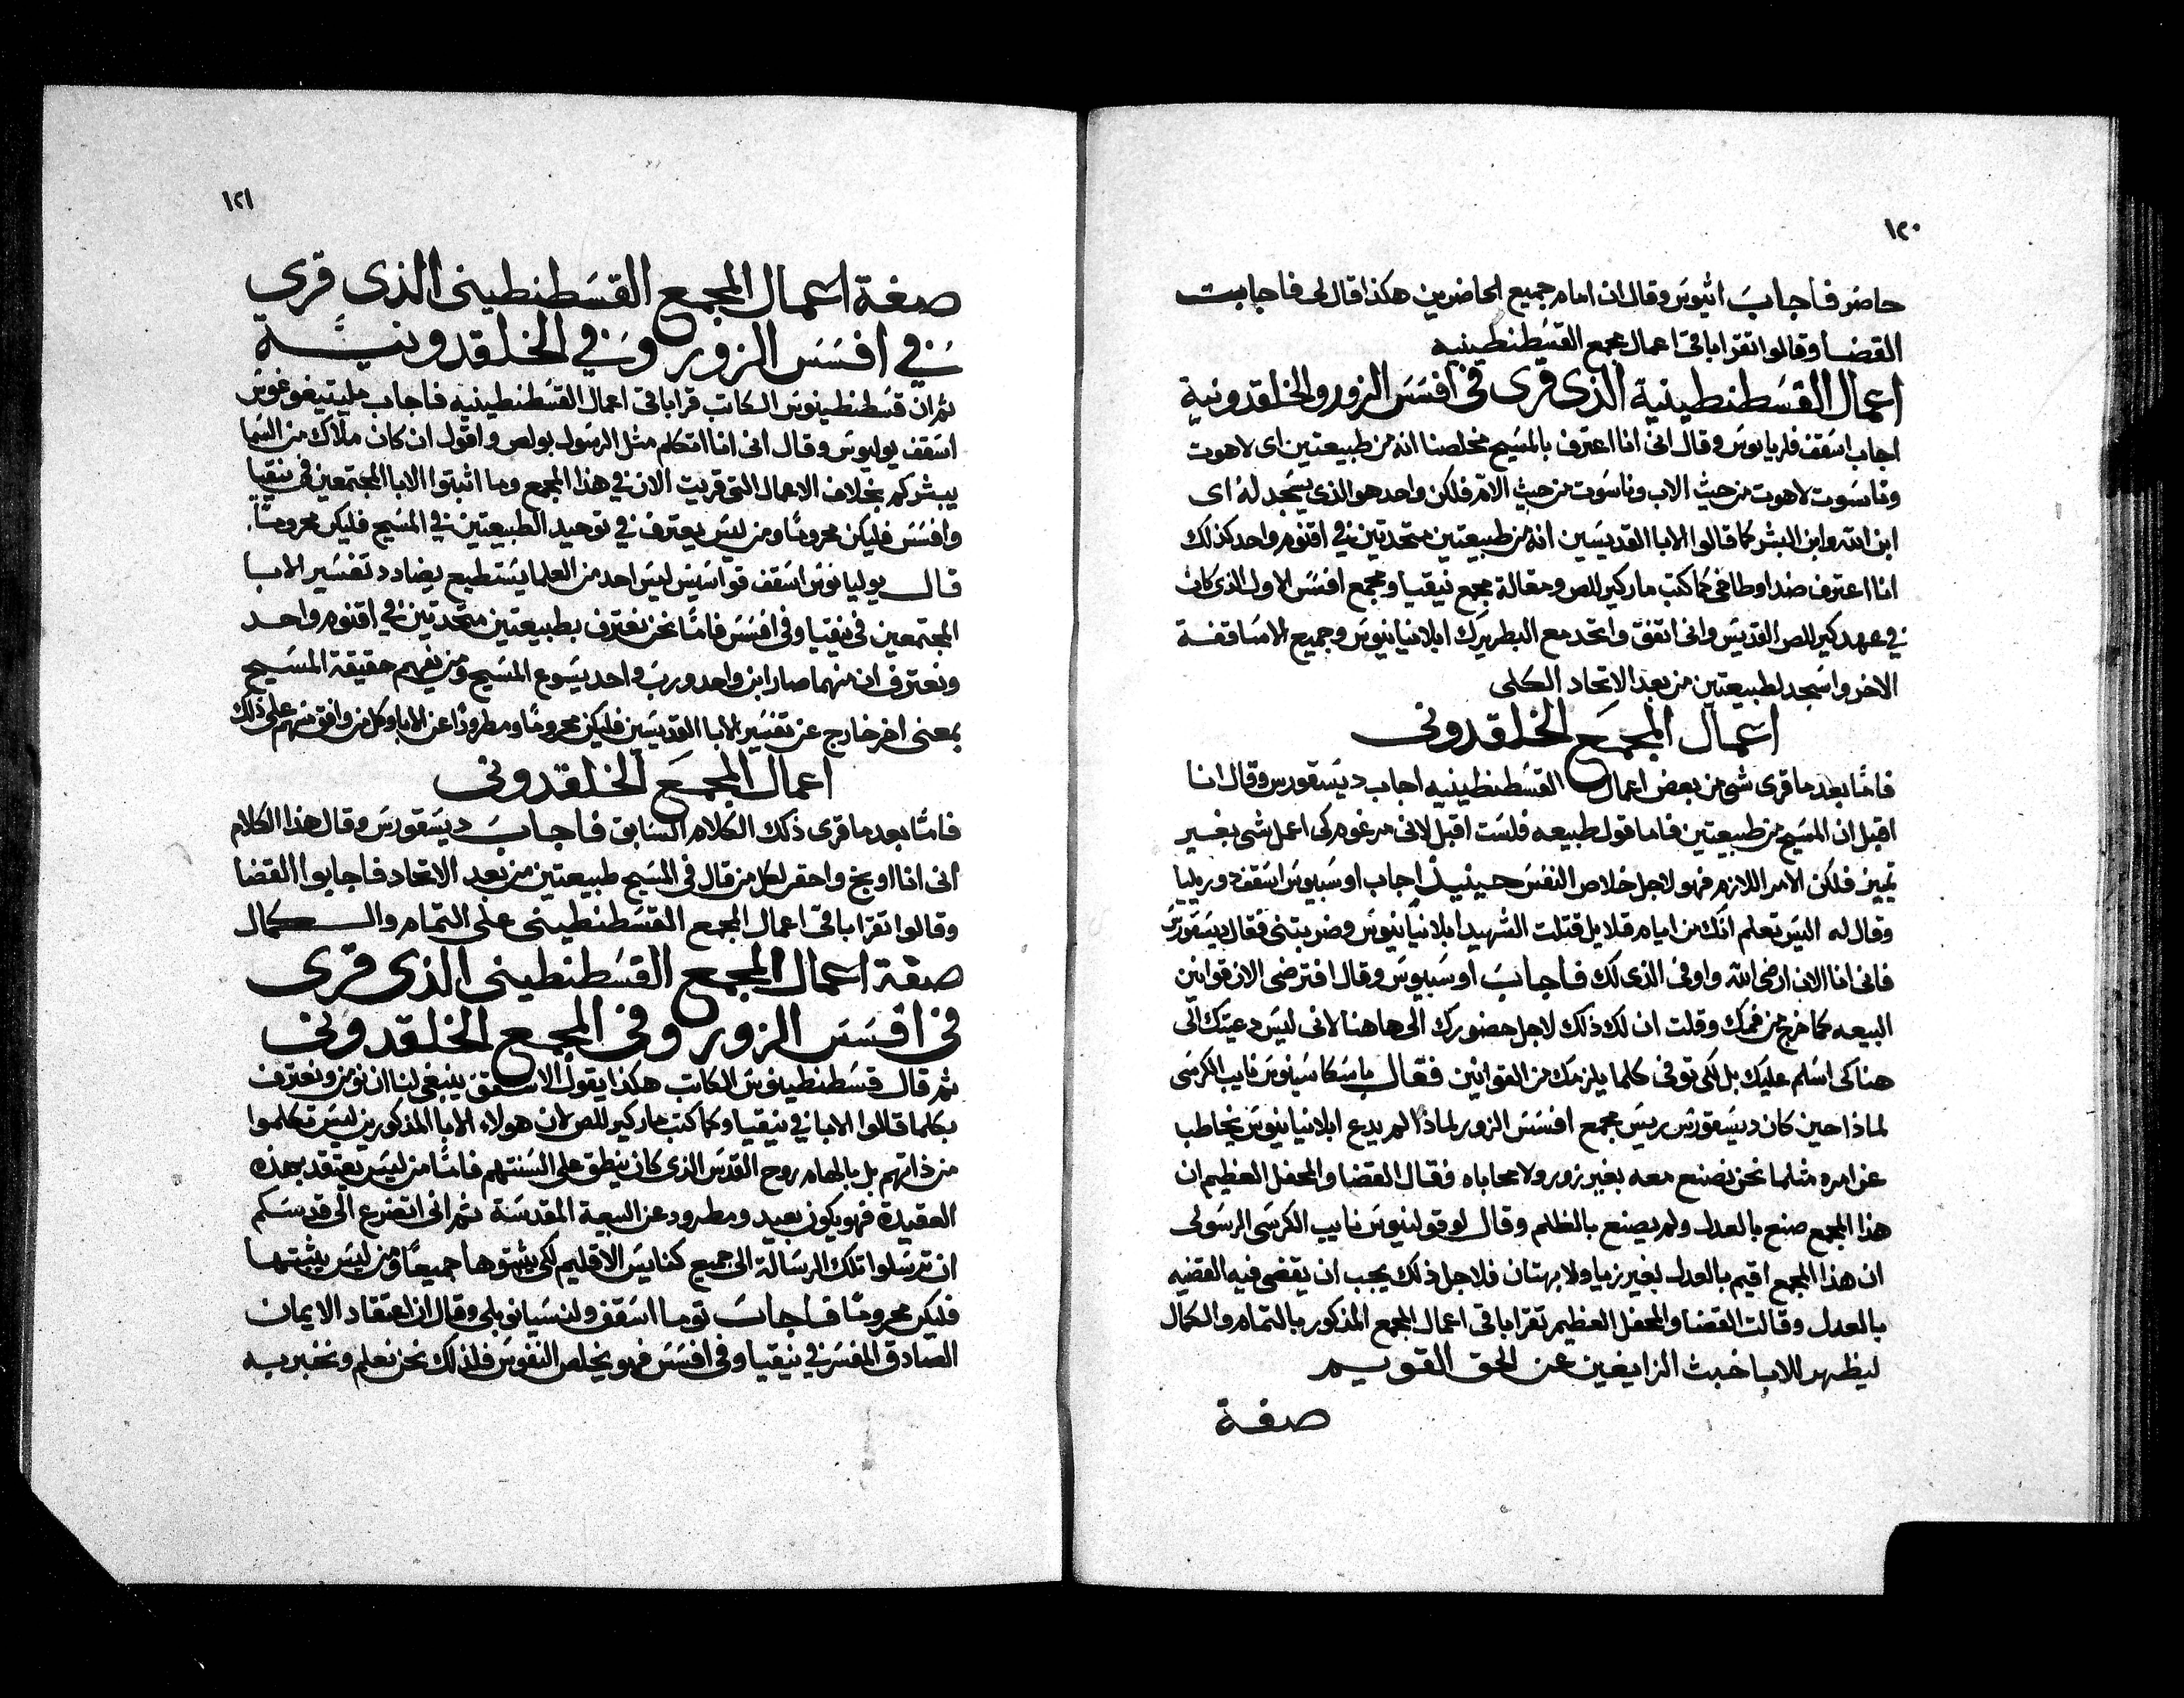 ١٢٠
حاضر فاجاب اتيوس وقال ان امام جميع الحاضرين هكذا قال لي فاجابت
القضا وقالوا تقرا باقي اعمال مجمع القسطنطينيه
اعمال القسطنطينية الذي قرى في افسس الزور والخلقدونية
اجاب اسقف فلريانوس وقال اني انا اعترف بالمسيح مخلصنا انه من طبيعتين اى لاهوت
وناسوت لاهوت من حيث الاب وناسوت من حيث الام فلكن واحد هو الذي يسجد له اى
ابن الله وابن البشر كما قالوا الابا القديسين انه من طبيعتين متحدتين في اقنوم واحد كذلك
انا اعترف ضد اوطاخي كما كتب مار كيرللص ومقالة مجمع نيقيا ومجمع افسس الاول الذي كان
في عهد كيرللص القديس واني اتفق واتحد مع البطريرك ابلانيانيوس وجميع الاساقفة
الاخر واسجد لطبيعتين من بعد الاتحاد الكلى
اعمال المجمع الخلقدوني
فامّا بعد ما قرى شي من بعض اعمال القسطنطينيه اجاب ديسقورس وقال انا
اقبل ان المسيح من طبيعتين فاما قول طبيعه فلست اقبل لاني مرغوم كي اعمل شي بغير
تميز فلكن الامر اللازم فهو لاجل خلاص النفس حينيذ اجاب اوسبيوس اسقف دوريليا
وقال له اليس تعلم انك من ايام قلايل قتلت الشهيد ابلانيانيوس وضربتني فقال ديسقورس
فاني انا الان ارضي الله واوفى الذي لك فاجاب اوسبيوس وقال افترضى الان قوانين
البيعه كما خرج من فمك وقلت ان لك ذلك لاجل حضورك الى هاهنا لاني ليس دعيتك الى
هنا كي اسلم عليك بل لكي توفى كلما يلزمك من القوانين فقال باسكاسينوس نايب الكرسى
لماذا حين كان ديسقورس ريس مجمع افسس الزور لماذا لم يدع ابلانيانيوس يخاطب
عن امره مثلما نحن نصنع معه بغير زور ولا محاباه فقال القضا والمحفل العظيم ان
هذا المجمع صنع بالعدل ولم يصنع بالظلم وقال لوقولنيوس نايب الكرسى الرسولى
ان هذا المجمع اقيم بالعدل بغير زيا ولا بهتان فلاجل ذلك يجب ان يقضى فيه القضيه
بالعدل وقالت القضا والمحفل العظيم تقرا باقي اعمال المجمع المذكور بالتمام والكمال
ليظهر للابا خبث الزايغين عن الحق القويم
صفة
١٢١
صفة اعمال المجمع القسطنطيني الذي قرى
في افسس الزور وفي الخلقدونية
ثم ان قسطنطينوس الكاتب قرا باقي اعمال القسطنطينيه فاجاب مليتيفوغوس
اسقف يوليوس وقال اني انا اتكلم مثل الرسول بولص واقول ان كان ملاك من السما
يبشركم بخلاف الاعمال التي قريت الان في هذا المجمع وما اثبتوا الابا المجتمعين في نيقيا
وافسس فليكن محرومًا ومن ليس يعترف في توحيد الطبيعتين في المسيح فليكن محرومًا
قال يوليانوس اسقف قواسيس ليس احد من العلما يستطيع يضادد تفسير الابا
المجتمعين في نيقيا وفي افسس فامّا نحن نعترف بطبيعتين متحدتين في اقنوم واحد
ونعترف ان منهما صار ابن واحد ورب واحد يسوع المسيح ومن يفهم حقيقة المسيح
بمعنى اخر خارج عن تفسير الابا القديسين فليكن محرومًا ومطرودًا عن الابا وكل من وافق منهم على ذلك
اعمال المجمع الخلقدوني
فامّا بعد ما قرى ذلك الكلام السابق فاجاب ديسقورس وقال هذا الكلام
اني انا اوبخ واحقر لكل من قال في المسيح طبيعتين من بعد الاتحاد فاجابوا القضا
وقالوا تقرا باقي اعمال المجمع القسطنطيني على التمام والكمال
صفة اعمال المجمع القسطنطيني الذي قرى
في افسس الزور وفي المجمع الخلقدوني
ثم قال قسطنطينوس الكاتب هكذا يقول الاسقف ينبغي لنا ان نومن ونعترف
بكلما قالوا الابا في نيقيا وكما كتب مار كيرللص لان هولاء الابا المذكورين ليس تكلموا
من ذاتهم بل بالهام روح القدس الذي كان ينطق على السنتهم فامّا من ليس يعتقد بهذه
العقيدة فهو يكون بعيد ومطرود عن البيعة المقدسة ثم اني اتضرع الى قدسكم
ان ترسلوا تلك الرسالة الى جميع كنايس الاقليم لكي يثبتوها جميعًا ومن ليس يثبتها
فليكن محرومًا فاجاب توما اسقف ولنسيانوبلي وقال ان اعتقاد الايمان
الصادق المفسر في نيقيا وفي افسس فهو يخلص النفوس فلذلك نحن نعلم ونخبر به